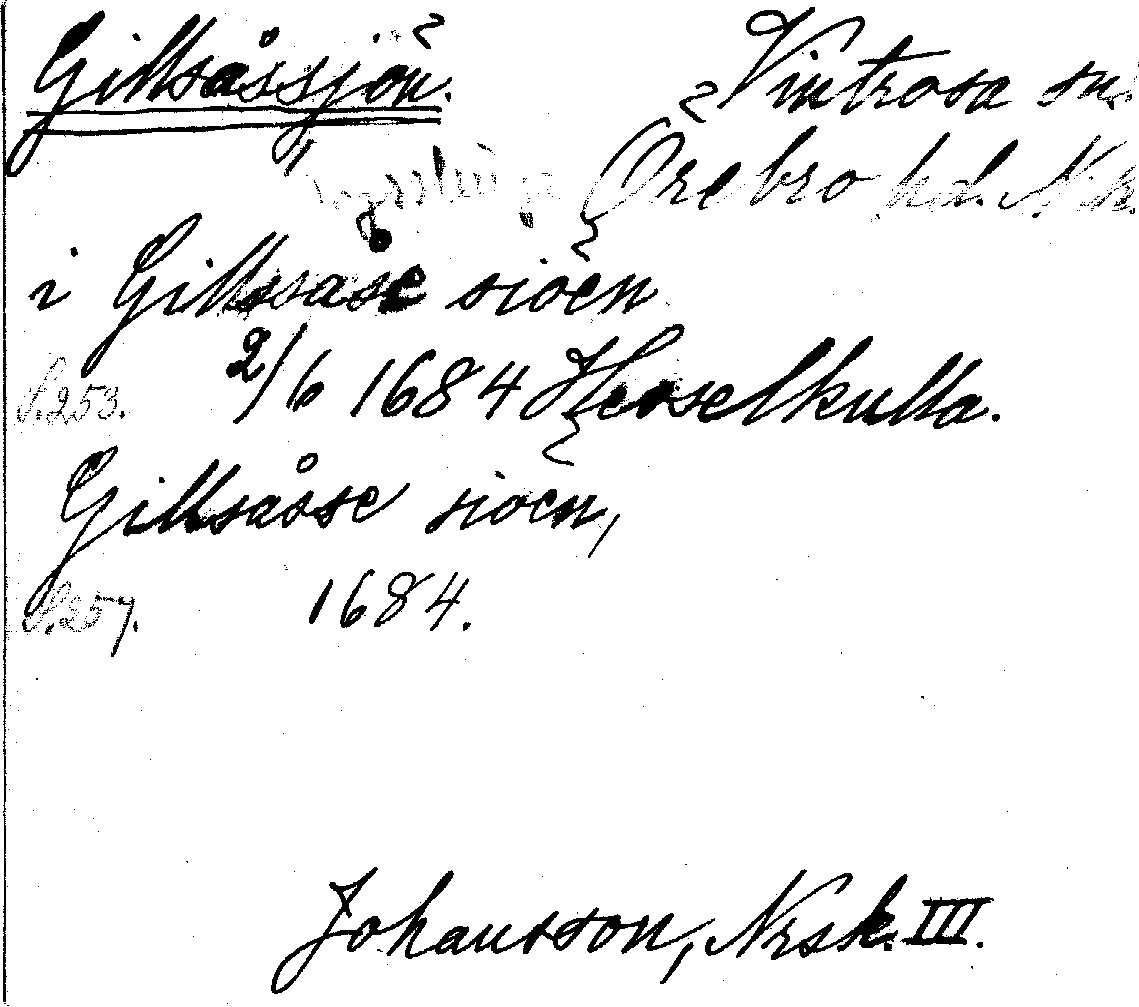 Gillsåssjön. Vintrosa sn.
Örebro hd. Nk.
i Gillssåse siöen
S. 253. 2/6 1684 Heoselkulla.
Gillsåsse siöen,
S. 257. 1684.
Johansson, Nrsk. III.